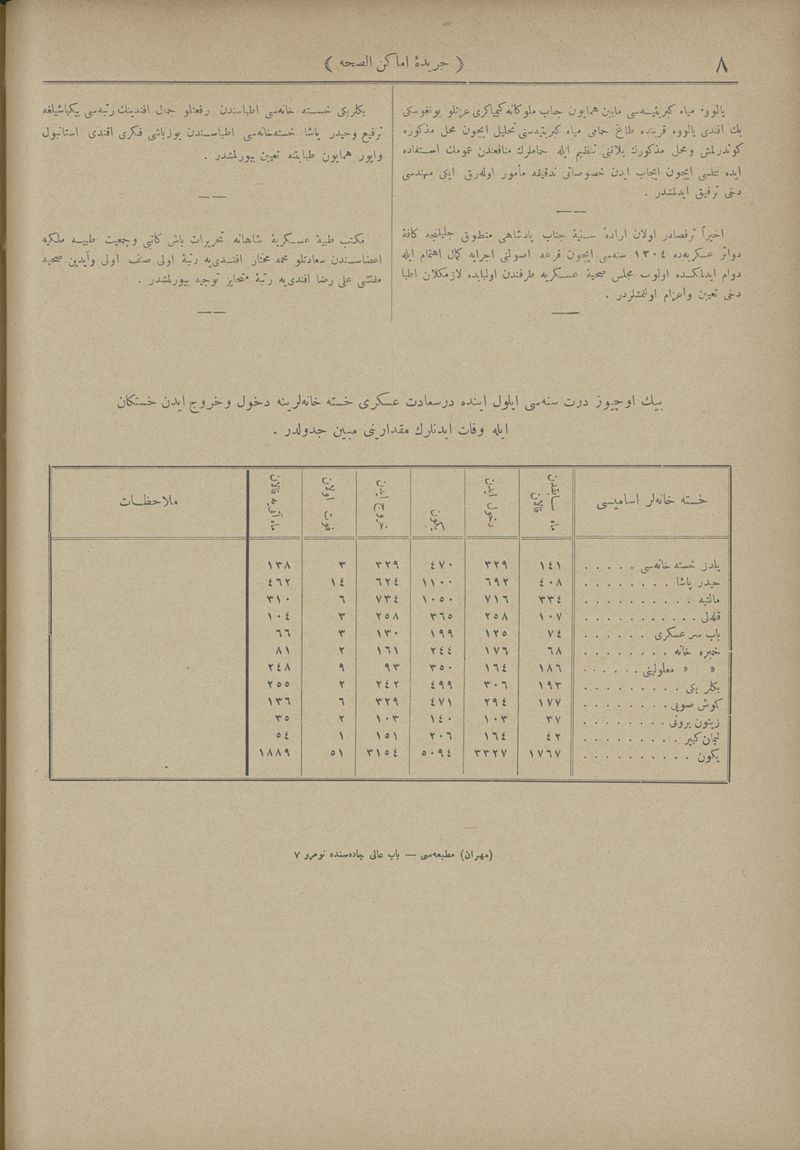 ٨
﴿ جریدهٔ اماکن الصحه ﴾
یالووه میاه کبریتیه‌سی مابین همایون جناب ملوکانه کیمیاکری عزتلو بونقوسکی
بك افندی یالووه قربنده طاغ حمامی میاه کبریتیه‌سنی تحلیل ایچون محل مذکوره
کوندرلمش ومحل مذکورك پلاننی تنظیم ایله حماملرك منافعندن عمومك استفاده
ایده بیلمسی ایچون ایجاب ایدن خصوصاتی تدقیقه مأمور اوله‌رق ایکی مهندسی
دخی ترفیق ایدلمشدر .
اخیراً شرفصادر اولان ارادهٔ سنیهٔ جناب پادشاهی منطوق جلیلنجه کافهٔ
دوائر عسکریه‌ده ١٣٠٤ سنه‌سی ایچون قرعه اصولنی اجرایه کمال اهتمام ایله
دوام ایدلمکده اولوب مجلس صحیهٔ عسکریه طرفندن اولبابده لازمکلان اطبا
دخی تعیین واعزام اولنمشلردر .
بکلربکی خسته خانه‌سی اطباسندن رفعتلو جمال افندینك رتبه‌سی بیکباشیلغه
ترفیع وحیدر پاشا خسته‌خانه‌سی اطباسندن یوزباشی فکری افندی استانبول
واپور همایون طبابتنه تعیین بیورلمشدر .
مکتب طبیهٔ عسکریهٔ شاهانه تحریرات باش کاتبی وجمعیت طبیه ملکیه
اعضاسندن سعادتلو محمد مختار افندی‌یه رتبهٔ اولی صنف اولی وآیدین صحیه
مفتشی علی رضا افندی‌یه رتبهٔ متمایز توجیه بیورلمشدر .
بیك اوچیوز درت سنه‌سی ایلول آینده درسعادت عسکری خسته خانه‌لرینه دخول وخروج ایدن خستکان
ایله وفات ایدنلرك مقدارینی مبین جدولدر .
خسته خانه‌لر اسامیسی ماه سابقدن قالان دخول ایدن یکون خروج ایدن فوت اولان ماه آتی‌یه قالان ملاحظات
یلدز خسته خانه‌سی . . . . . ١٤١ ٣٢٩ ٤٧٠ ٣٢٩ ٣ ١٣٨
حیدر پاشا . . . . . . . . ٤٠٨ ٦٩٢ ١١٠٠ ٦٢٤ ١٤ ٤٦٢
مالتپه . . . . . . . . . . ٣٣٤ ٧١٦ ١٠٥٠ ٧٣٤ ٦ ٣١٠
قله‌لی . . . . . . . . . . . ١٠٧ ٢٥٨ ٣٦٥ ٢٥٨ ٣ ١٠٤
باب سر عسکری . . . . . . ٧٤ ١٢٥ ١٩٩ ١٣٠ ٣ ٦٦
خمبره خانه . . . . . . . . ٦٨ ١٧٦ ٢٤٤ ١٦١ ٢ ٨١
« « معلولینی . . . . . . ١٨٦ ١٦٤ ٣٥٠ ٩٣ ٩ ٢٤٨
بکلر بکی . . . . . . . . . ١٩٣ ٣٠٦ ٤٩٩ ٢٤٢ ٢ ٢٥٥
کوش صویی . . . . . . . . ١٧٧ ٢٩٤ ٤٧١ ٣٢٩ ٦ ١٣٦
زیتون برونی . . . . . . . ٣٧ ١٠٣ ١٤٠ ١٠٣ ٢ ٣٥
لیمان کبیر . . . . . . . . . ٤٢ ١٦٤ ٢٠٦ ١٥١ ١ ٥٤
یکون . . . . . . . . . . ١٧٦٧ ٣٣٢٧ ٥٠٩٤ ٣١٥٤ ٥١ ١٨٨٩
(مهران) مطبعه‌سی — باب عالی جاده‌سنده نومرو ٧